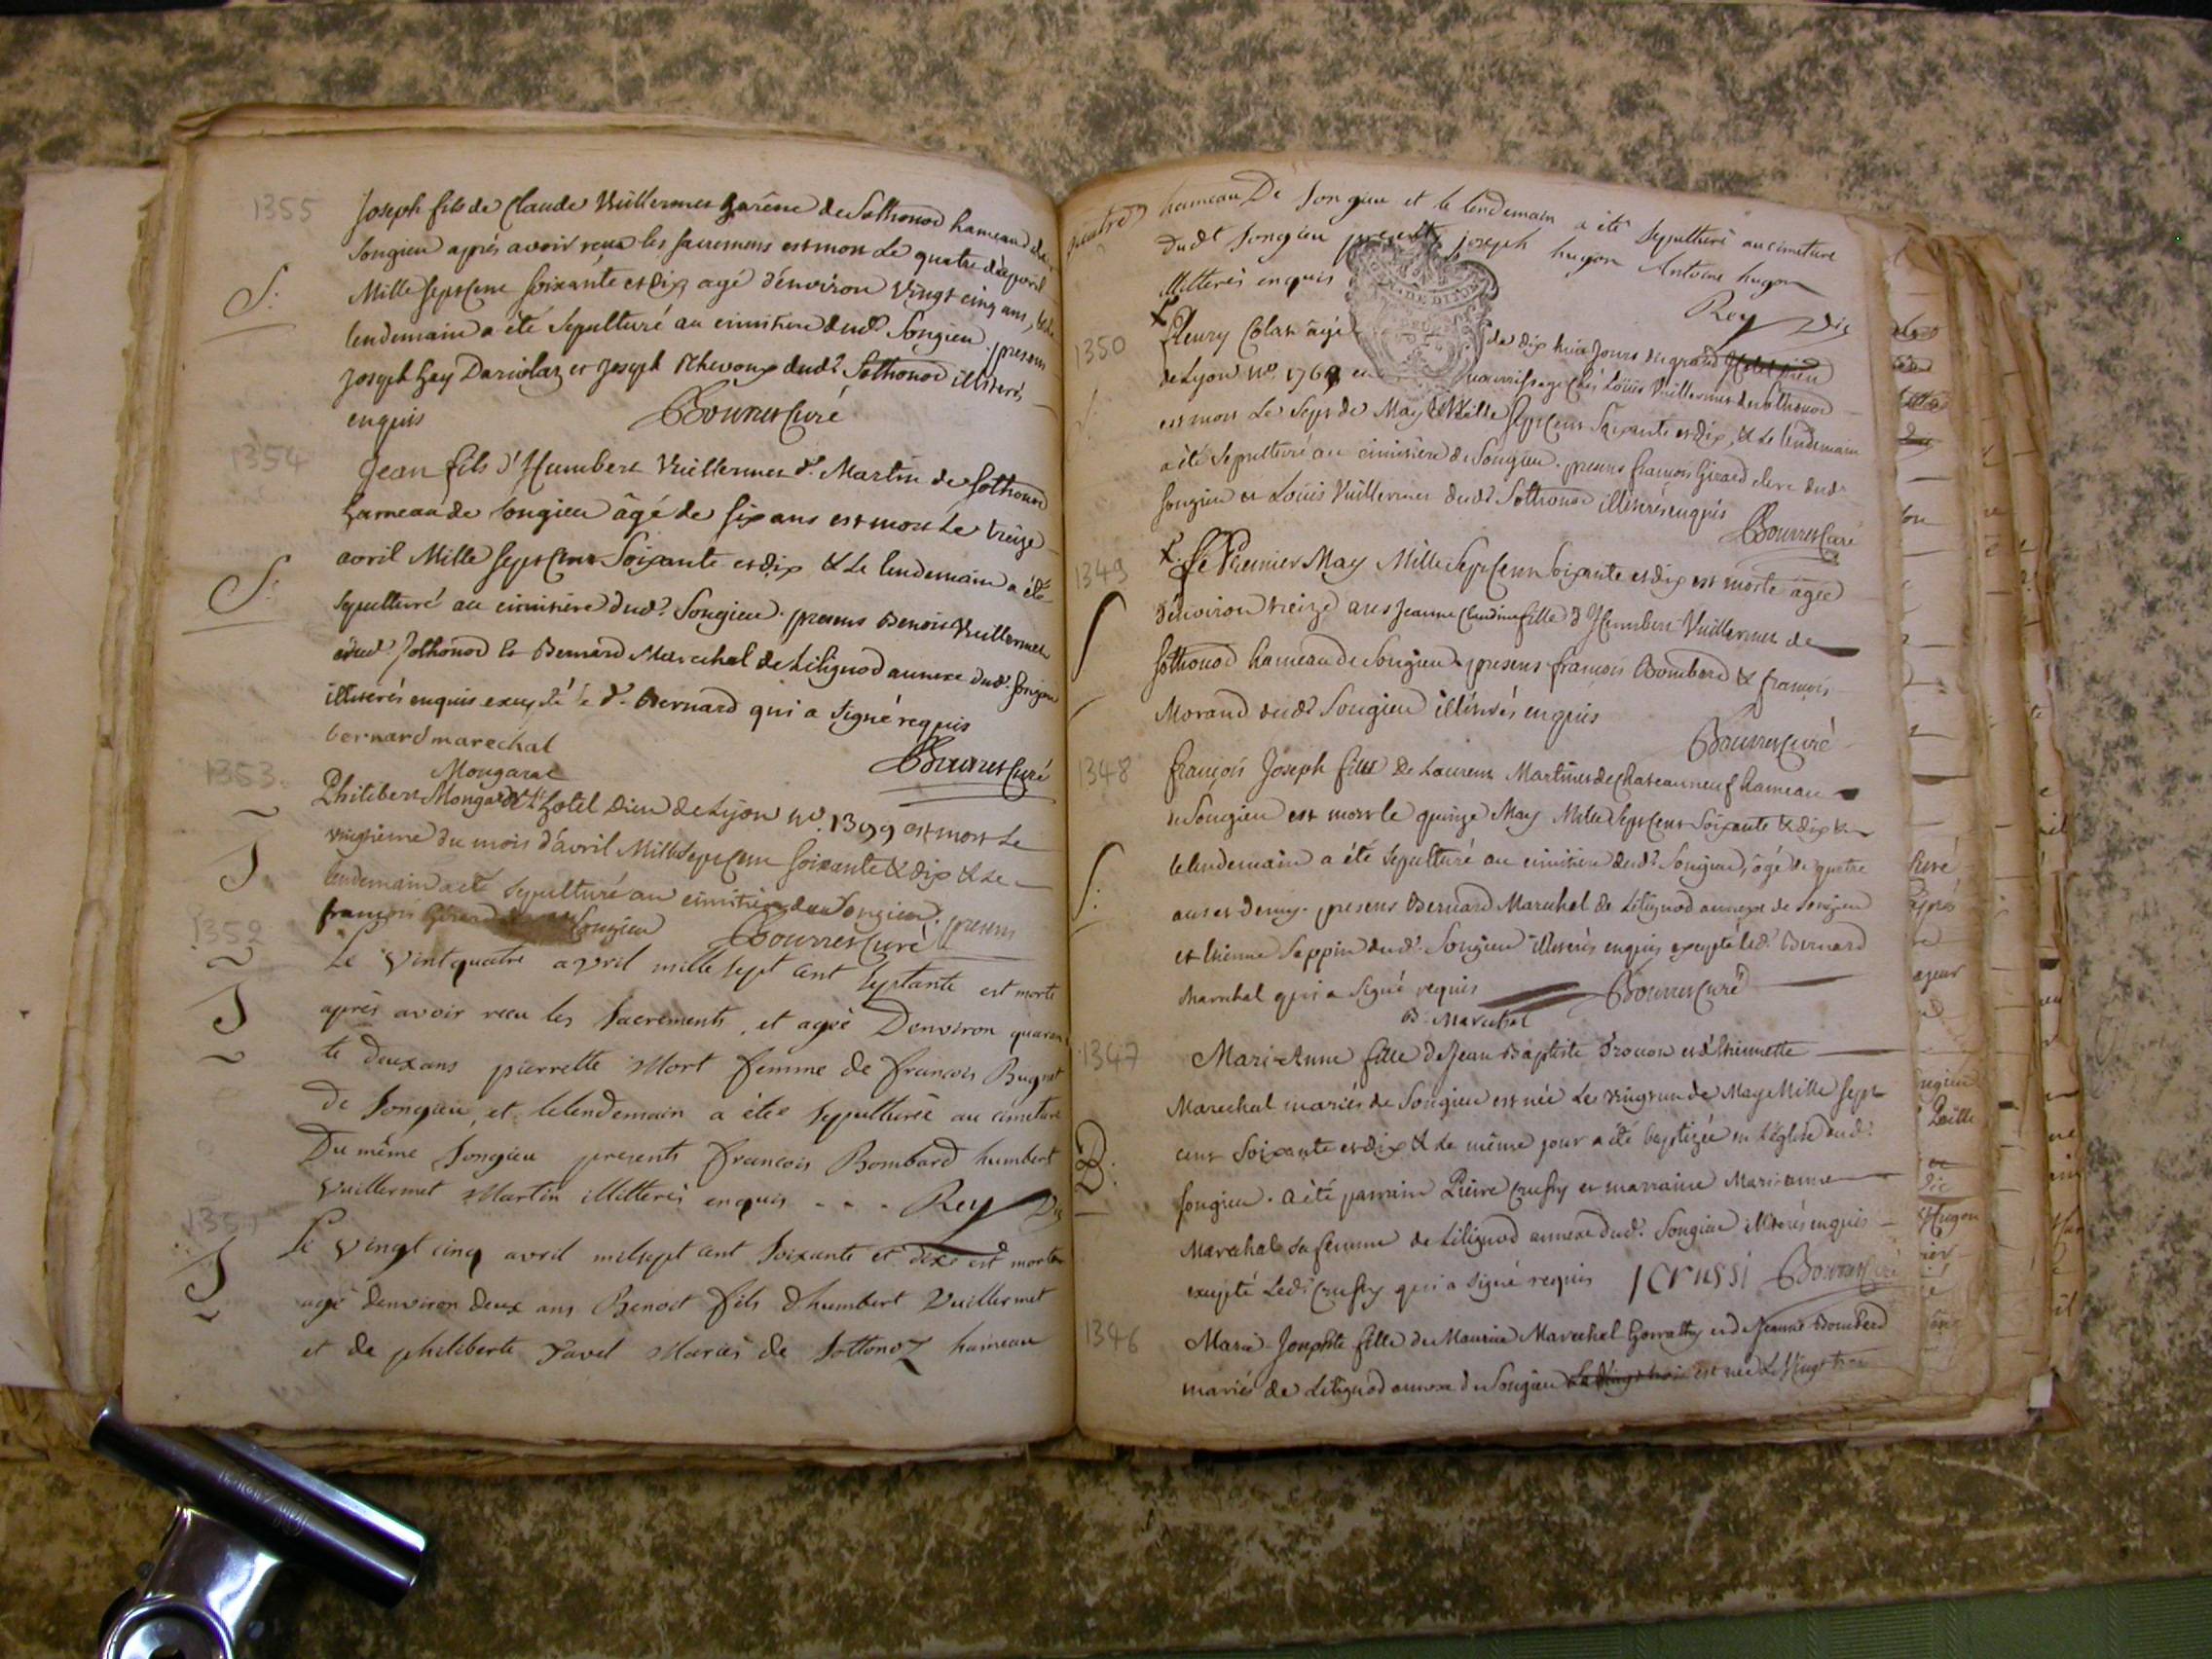 1355
Joseph fils de Claude Vuillermet garène de Sothonod hameau de
Songieu après avoir reçu les sacremens est mort Le quatre d'avril
S.
Mille sept cent soixante et dix agé d'énviron vingt cinq ans, & le
lendemain a été sepulturé au cimitiere dud.t Songieu. presens
joseph hey et joseph dud.t Sothonod illiterés
enquis
Bourret Curé
1354
Jean fils d'Humbert Vuillermet d.t Martin de Sothonod
hameau de Songieu âgé de six ans est mort Le treize
avril Mille sept cent soixante et dix & Le lendemain a été
S.
sepulturé au cimitiere dud.t Songieu. presens Benoit Vuillermet
dud.t Sothonod & Bernard Marechal de Lilignod annexe dud.t Songieu
illiterés enquis excepté le d.t Bernard qui a signé requis
bernard marechal
Bourret Curé
1353
Mongarat
Philibert de L'hotel Dieu de Lyon N.o 1399 est mort Le
vingtieme du mois d'avril Mille sept cent soixante & dix & Le
S.
lendemain a été sepulturé au cimitiere de Songieu. presens
françois Girard Songieu
Bourret Curé
1352
Le vint quatre avril mille sept cent septante est morte
S
après avoir recu les sacrements, et agée Denviron quaran
te deux ans pierrette Mort femme de francois Bugnet
De Songieu, et le lendemain a étée sepulturée au cimetiere
Du même Songieu presents francois Bombard humbert
vuillermet Martin illitterés enquis - - - Rey Vic
1351
Le vingt cinq avril mil sept cent soixante et dix est mort
S
agé denviron deux ans Benoit fils dhumbert Vuillermet
et de philiberte Pavel Mariés de Sottonoz hameau
hameau De Songieu et le lendemain a été sepulturé au cimetiere
Dudt Songieu presents joseph hugon Antoine hugon
illitterés enquis
Rey Vic
1350
fleury Colas âgé de dix huit jours du grand Hotel Dieu
de Lyon N.o 1769 en nourrissage chés Loüis Vuillermet de Sothonod
est mort Le sept de May Mille sept cent soixante et dix, & Le lendemain
a été sepulturé au cimitiere de Songieu. presens françois Girard clerc dud.t
Songieu et Loüis Vuillermet dud.t Sothonod illiterés enquis
Bourret Curé
1349
Le Premier May Mille sept cent soixante et dix est morte agée
d'énviron treize ans Jeanne Claudine fille d'Humbert Vuillermet de
S
Sothonod hameau de Songieu presens françois Bombard & françois
Morand dud.t Songieu illiterés enquis
Bourret Curé
1348
françois Joseph fils De Laurent Martinet de chateauneuf hameau
de Songieu est mort le quinze May Mille sept cent soixante & dix &
lelendemain a été sepulturé au cimitiere dud.t Songieu, âgé de quatre
S.
ans et demy. presens Bernard Marechal de Lilignod annexe de Songieu
et Etienne Seppin dud.t Songieu illiterés enquis excepté led.t Bernard
Marechal qui a signé requis
Bourret Curé
B. Marechal
1347
Mari-Anne fille de Jean Baptiste et d'Ethiennette
Marechal mariés de Songieu est née Le vingt un de May Mille sept
cent soixante et dix & Le même jour a été baptizée en L'église dud.t
B.
Songieu. a été parrain Pierre Crussy et marraine Mari-anne
Marechal sa femme de Lilignod annexe dud.t Songieu illiterés enquis
excepté Led.t Crussy qui a signé requis
crussi
Bourret Curé
1346
Marie-Josephte fille de Maurice Marechal et de Jeanne Bombard
mariés de Lilignod annexe de Songieu est née Le Vingt trois